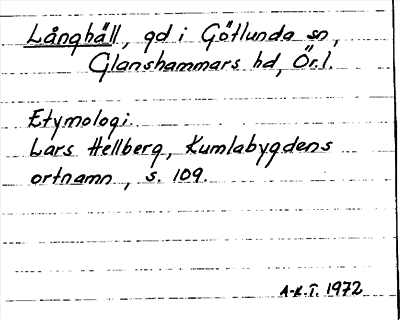 Långhäll, gd i Götlunda sn,
Glanshammars hd, Ör.l.
Etymologi.
Lars Hellberg, Kumlabygdens
ortnamn, s. 109.
A-K.T. 1972